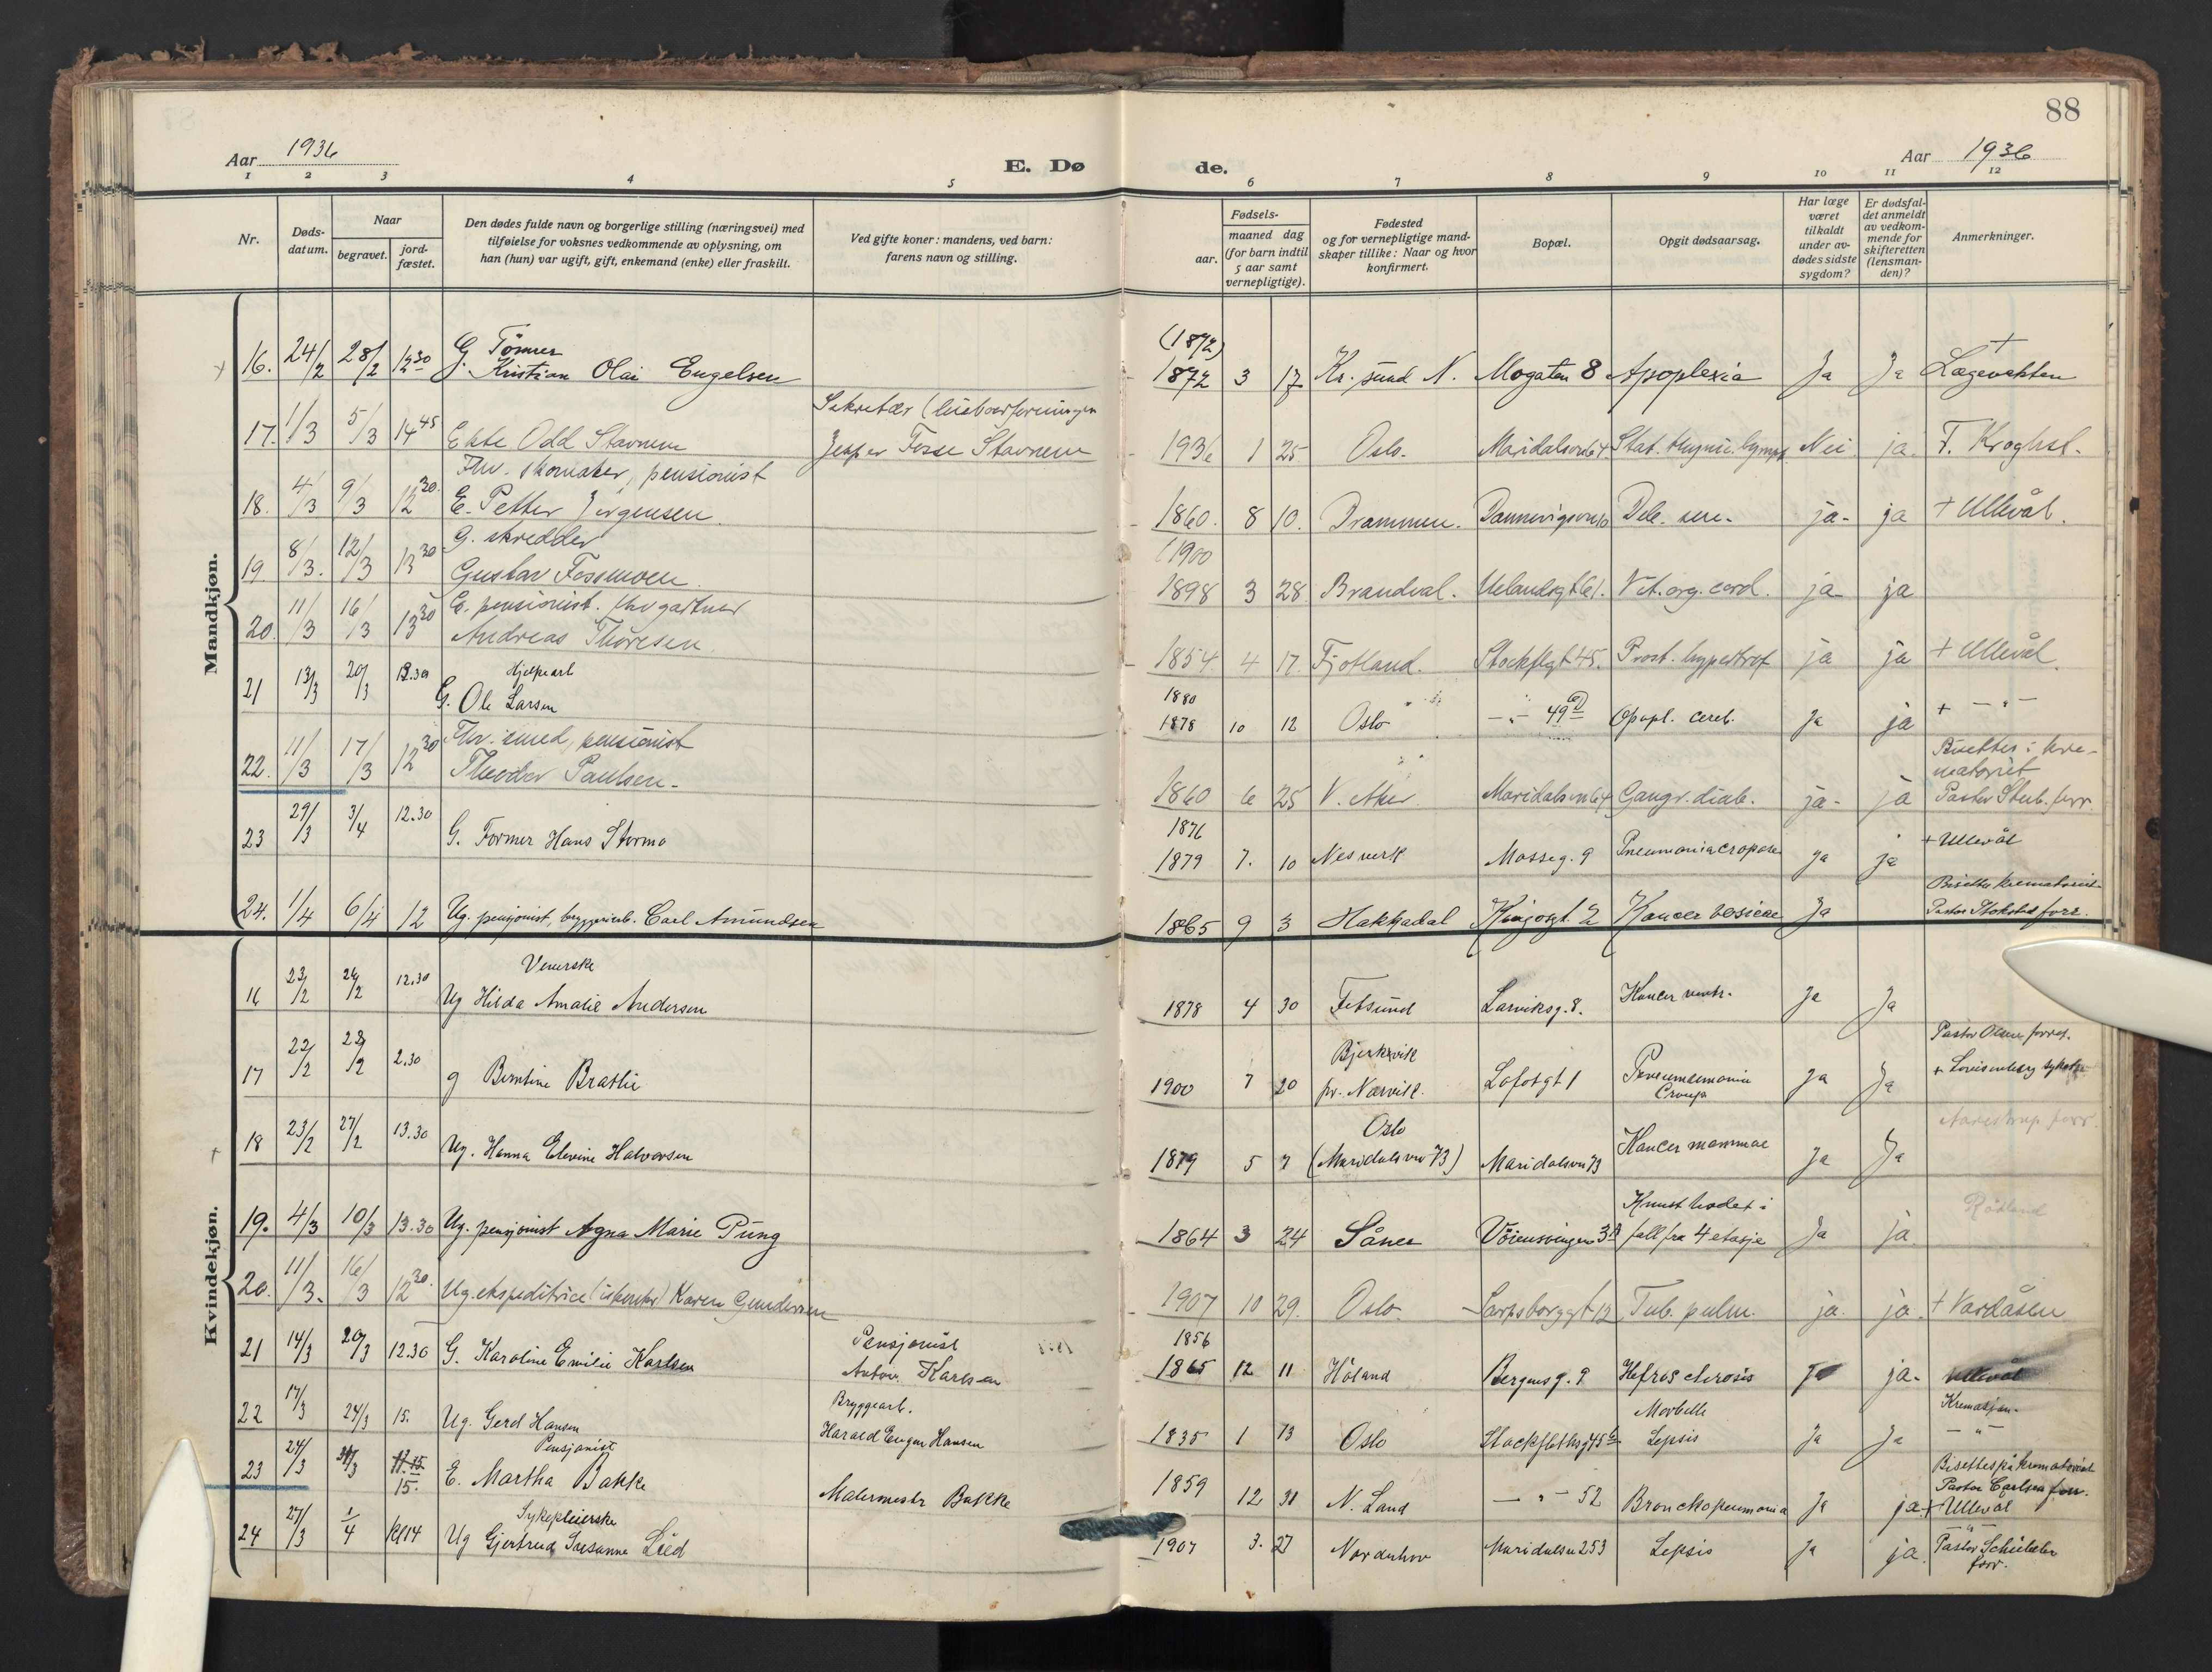 88
Aar 1936
E. Dø
de.
Aar 1936
1 2 3 4 5 6 7 8 9 10 11 12
Nr.
Døds-
datum.
Naar
begravet.
jord-
fæstet.
Den dødes fulde navn og borgerlige stilling (næringsvei) med
tilføielse for voksnes vedkommende av oplysning, om
han (hun) var ugift, gift, enkemand (enke) eller fraskilt.
Ved gifte koner: mandens, ved barn:
farens navn og stilling.
Fødsels-
aar.
maaned dag
(for barn indtil
5 aar samt
vernepligtige).
Fødested
og for vernepligtige mand-
skaper tillike: Naar og hvor
konfirmert.
Bopæl.
Opgit dødsaarsag.
Har læge
været
tilkaldt
under av-
dødes sidste
sygdom?
Er dødsfal-
det anmeldt
av vedkom-
mende for
skifteretten
(lensman-
den)?
Anmerkninger.
Mandkjøn.
G. Tömrer (1872) +
16. 24/2 28/2 12 30 Kristian Olai Engelsen 1872 3 17 Kr. sund N. Mogaten 8 Apoplexia Ja Ja Lægevakten
Sekretær
17. 1/3 5/3 14 45 Ekte Odd Stavnem Jesper Fosse Stavnem 1936 1 25 Oslo. Maridalsvn 64 Nei ja. F. Kroghsl.
Fhv. skomaker, pensionist
18. 4/3 9/3 12 30 E. Petter Jörgensen 1860. 8 10. Drammen. ja- ja + Ullevål.
G. skredder (1900
19 8/3. 12/3 13 30 Gustav Fossmoen. 1898 3 28 Brandval. Uelandsgt 61. Vit. org. cord. ja ja
E. pensionist. fhv gartner
20. 11/3 16/3 13 30 Andreas Thoresen. 1854 4 17. Fjotland. Stockflgt 45. Prost. hypertrof ja ja + Ullevål.
Hjelpearb 1880
21 13/3 20/3 12.30 G. Ole Larsen 1878 10 12 Oslo - " - 49 Apopl. cereb. Ja ja + - " -
Fhv. smed, pensionist Bisettes i kre-
matoriet
22. 11/3 17/3 12 30 Theodor Paulsen. 1860 6 25 V. Aker Maridalsvn 64 Gangr. diab. ja- ja Pastor Stub. forr.
1876
23 29/3 3/4 12.30 G. Former Hans Stormo 1879 7. 10 Nes verk Mosseg. 9 Pneumonia croposa Ja ja + Ullevål
Bisettes krematoriet
24. 1/4 6/4 12 Ug. pensjonist, bryggeriarb. Carl Amundsen 1865 9 3 Hakkadal Kingosgt. 2 Kancer vesicae Ja Pastor Stokstad forr.
Kvindekjøn.
Veverske
16 23/2 26/2 12.30 Ug Hilda Amalie Andersen 1878 4 30 Fetsund Larviksg. 8. Kancer ventr. Ja Ja
Bjerkvik Pastor Olsen forret.
17 22/2 28/2 2.30 g Berntine Bratlie 1900 7 20 pr. Narvik. Lofotgt 1 Pneumonia Croup Ja Ja + Lovisenberg sykehs
Oslo
18 23/2 27/2 13.30 Ug. Hanna Elevine Halvorsen 1879 5 7 (Maridalsvn 73) Maridalsvn 73 Kancer mammae Ja Ja Aarestrup forr.
Knust hodet i Rötland
19. 4/3 10/3 13.30 Ug. pensjonist Agna Marie Pung 1864 3 24 Såner Vöiensvingen 3 fall fra 4 etasje Ja ja
20. 11/3. 16/3 12 30. Ug. ekspeditrice Karen Gundersen 1907 10 29. Oslo Sarpsborggt 12 Tub. pulm. ja. ja + Vardåsen
Pensjonist 1856
21 14/3 20/3 12.30 G. Karoline Emilie Karlsen Anton Karlsen 1865 12 11 Höland Bergensg. 9 Ja ja- Ullevål
Bryggearb. Morbilli Kremasjon.
22 17/3 24/3 15. Ug. Gerd Hansen Harald Eugen Hansen 1835 1 13 Oslo Stockflethsg 45 Sepsis Ja Ja - " -
Pensjonist Bisettes på krematoriet
Pastor Carlsen forr.
23 24/3 31/3 11.15 15. E. Martha Bakke Malermestr Bakke 1859 12 31 N. Land - " - 52 Bronchopneumonia Ja ja + Ullevål
Sykepleierske - " -
24 27/3 1/4 Kl 14 Ug Gjertrud Susanne Lied 1907 3. 27 Norderhov Maridalsvn 253 Sepsis Ja ja. Pastor Schielder
forr.